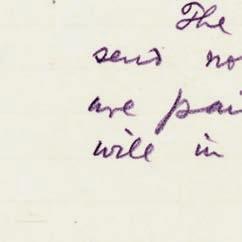 The
send no
are pai
will in